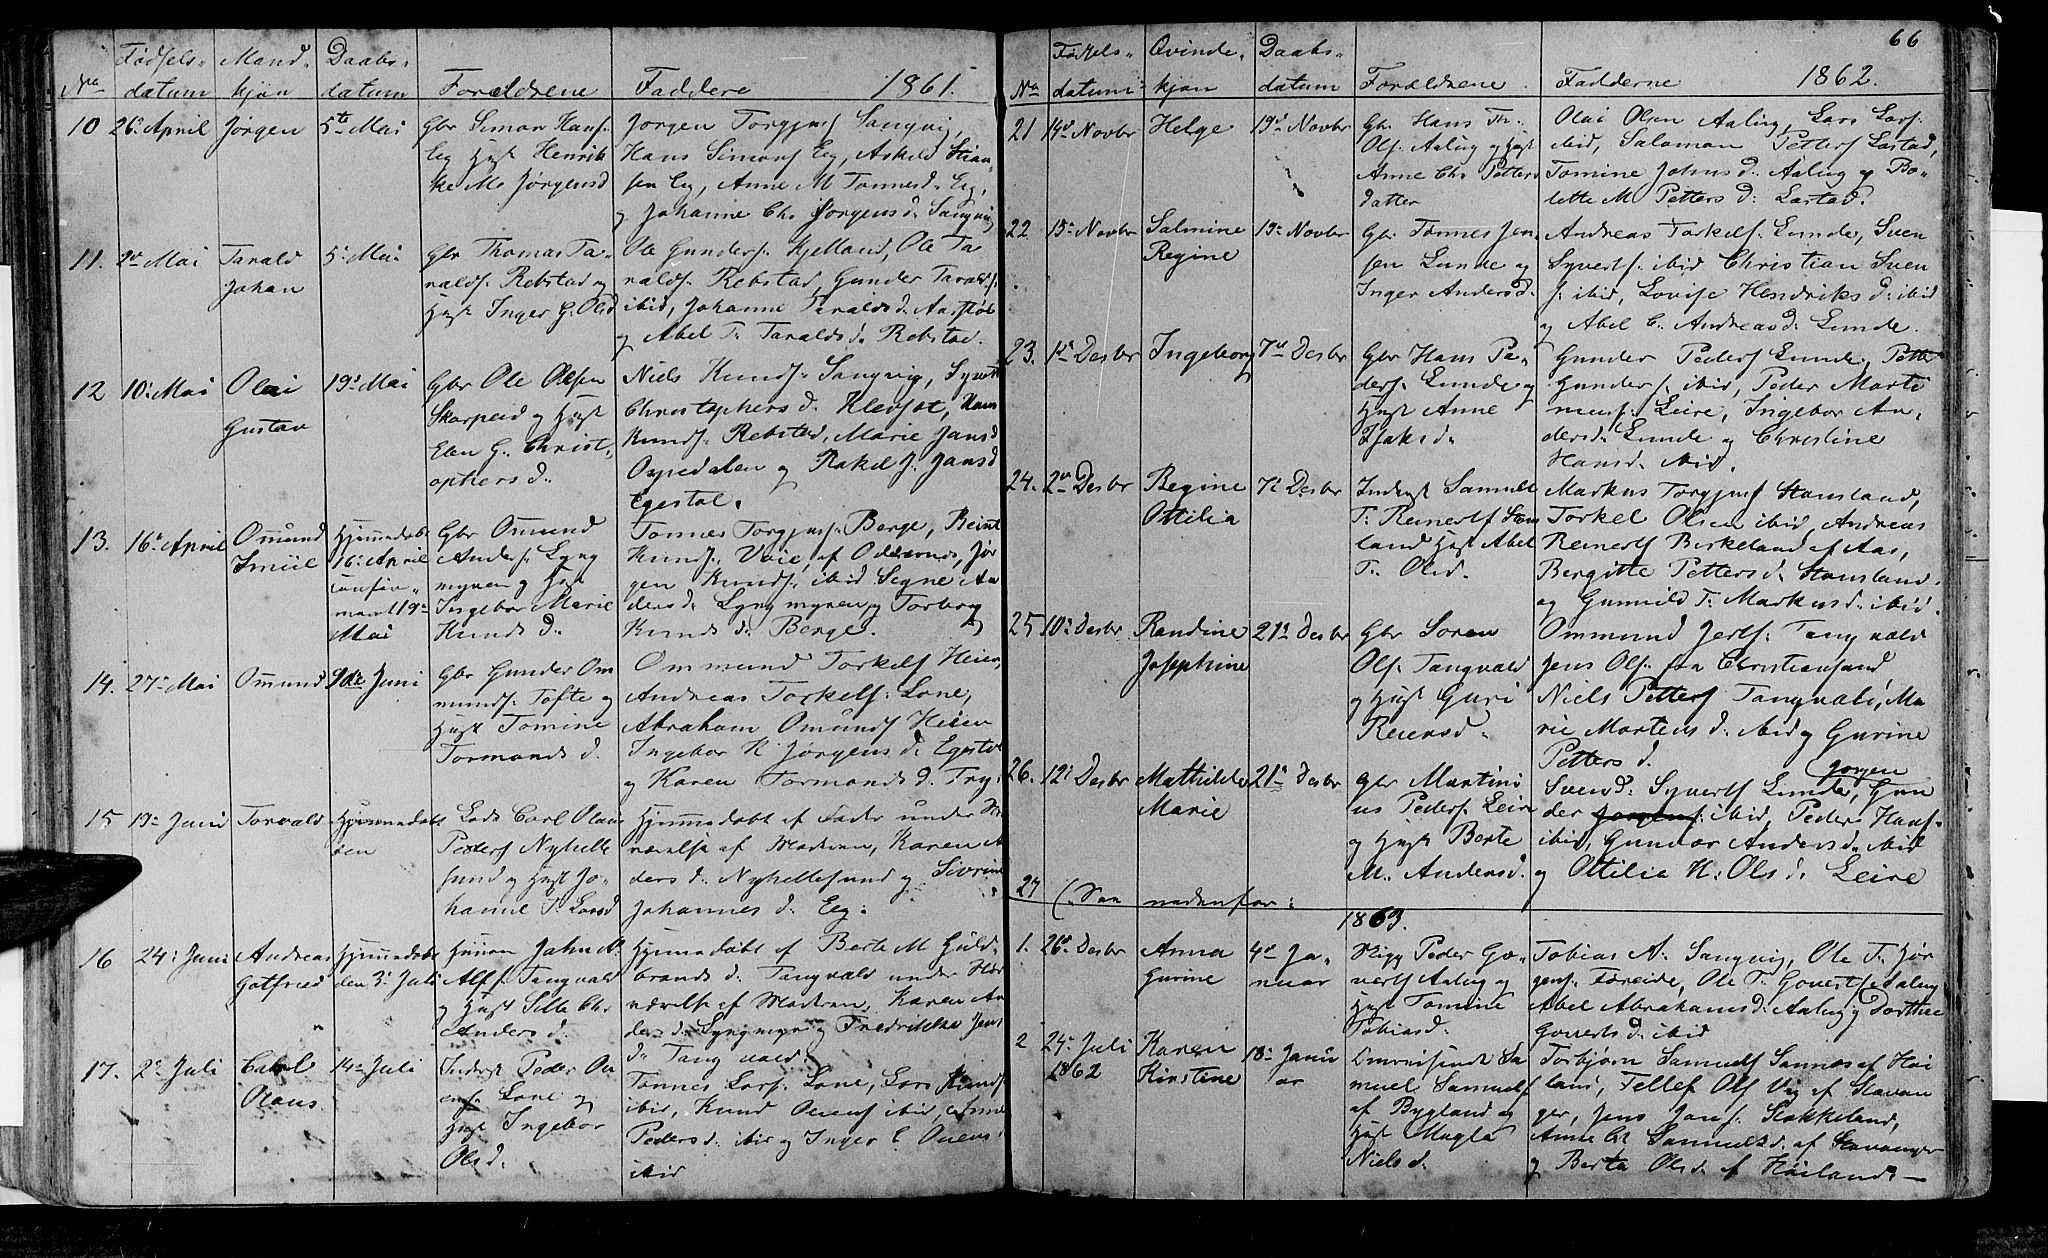 Fødsels- Mand- Daabs-
No datum kjøn datum Forældrene Faddere 1861.
10 26: April Jørgen 5te Mai Gbr Simon Hans.
Eeg Hust Henrik
ke M. Jørgensd
Jørgen Torgjus. Sangvig,
Hans Simons. Eeg, Askild Stian
sen Eeg, Anne M Tønnesd. Eeg,
og Johanne Chr Jørgensd. Sangvig
11. 2de Mai Tarald 5: Mai
Johan
Gbr Thomas Ta-
ralds. Rebstad og
Hust Inger G. Olsd
Ole Gunders. Kjelland, Ole Ta
ralds. Rebstad, Gunder Taralds.
ibid, Johanne Taralds d.
og Abel T. Taralds d. Rebstad.
12 10: Mai Olai 19: Mai
Gustav
Gbr Ole Olsen
Skarpeid og Hust
Elen G. Christ,
ophers d.
Niels Knuds. Sangvig,
Christophers d.
Knuds. Rebstad, Marie Jansd
Ospedalen og Rakel J. Jansd
Egestøl.
13. 16: April Omund Hjemmedøbt
16: April
Mai
Gbr Omund
Anders. Lyng
myren og Hust
Ingebor Marie
Knuds d.
Tønnes Torgjus. Berge, Reint
Knuds. Voie, af Odernes, Jør
gen Knuds. ibid Segne An
ders d. Lyngmyren og Torborg
Knuds d. Berge.
14. 27: Mai Omund 9de Juni
Gbr Gunder Om
munds. Tofte og
Hust Tomine
Tormonds d.
Ommund Torkels. Heien,
Andreas Torkels. Lone,
Abraham Omunds. Heien
Ingebor K. Jørgens d. Egestøl
og Karen Tormonds d. Try.
15 19: Juni Torvald Hjemmedøbt
Lods Carl Olaus
Peders. Nyhelle
sund og Hust Jo-
hanne T. Larsd
Hjemmedøbt af Fader under Næ
rværelse af Madren, Karen An
ders d. Nyhellesund og Sivrine
Johannes d. Eeg.
16 24: Juni Andreas Hjemmedøbt
Gotfried den 3: Juli
Husm John A.
Alfs. Tangvald
og Hust Sille Chr.
Anders d.
Hjemmedøbt af Berte M Guld-
brands d. Tangvald under Nær
værelse af Madren, Karen An
ders d. Lyngmyr og Fredrikke Jens
d. Tangvald.
17. 2: Juli Carl 14: Juli
Olaus
Inderst Peder Ou
ens. Lone og
Hust Ingebor
Olsd.
Tønnes Lars. Lone, Lars Knuds.
ibid, Knud Ouens. ibid, Anne
Peders d. ibid og Inger C. Ouens.
ibid
66
Fødsels- Qvinde- Daabs-
No datum kjøn datum Forældrene Fadderne 1862.
21 14: Novbr Helge 19: Novbr
Gbr Hans Th:
Ols. Aalug og Hust
Anne Chr Petters
datter
Olai Olsen Aalug, Lars Lars.
ibid, Salomon Petters. Løstad,
Tomine Johns d. Aalug og Bo-
lette M Petters d. Løstad.
22 15: Novbr Salmine 19: Novbr
Regine
Gbr Tønnes Jen
sen Lunde og
Inger Anders d.
Andreas Torkels. Lunde, Sven
Syverts. ibid Christian Sven
s. ibid, Lovise Hendriks d. ibid
og Abel C. Andreas d. Lunde.
23. 1: Desbr Ingeborg 7de Desbr
Gbr Hans Pe-
ders. Lunde og
Hust Anne
Isaks d.
Gunder Peders. Lunde, Petter
Gunders. ibid, Peder Marti
niuss. Leire, Ingebor An-
ders d. Lunde og Christine
Hans d. ibid.
24. 2de Desbr Regine 7: Desbr
Ottilia
Inderst Samuel
T. Reinerts. Stens
land Hust Abel
T. Olsd.
Markus Torgjus. Stensland,
Torkel Olsen ibid, Andreas
Reinerts. Birkeland af Aas,
Bergitte Petters d. Stensland.
og Gunnild T. Markus d. ibid.
25 10: Desbr Randine 21: Desbr
Josephine
Gbr Søren
Ols. Tangvald
og Hust Guri
Reiersd.
Ommund Jerts. Tangvald
Jens Ols. fra Christiansand
Niels Petters. Tangvald, Ma
rie Mortens d. ibid og Gurine
Petters d.
26. 12: Desbr Mathilde 21: Desbr
Marie
Gbr Martini
us Peders. Leire
og Hust Berte
M. Andersd.
Jørgen
Svend Syverts. Lunde, Gun
der Jørgens. ibid, Peder Hans.
ibid, Gunvor Anders d. ibid
og Ottilia K. Ols d. Leire
27 (See nedenfor:
1863.
1. 26: Desbr Anna 4de Ja-
Gurine nuar
Peder Go-
verts. Aalug og
Hust Tomine
Tobiasd.
Tobias A. Sangvig, Ole T. Jør
gens.Føreide, Ole T. Goverts. Aalug
Abel Abrahams d. Aalug og Dorthea
Goverts d. ibid
2 24: Juli Karen 18: Janu
1862 Kirstine ar
Sa
muel Samuels.
af Bygland og
Hust Magla
Niels d.
Torbjørn Samuels. Sannes af Høi
land, Tellef Ols. Vig af Stavan
ger, Jens Jans. Stokkeland,
Anne Ch Samuels d. af Stavanger
og Berta Ols d. af Høiland. —